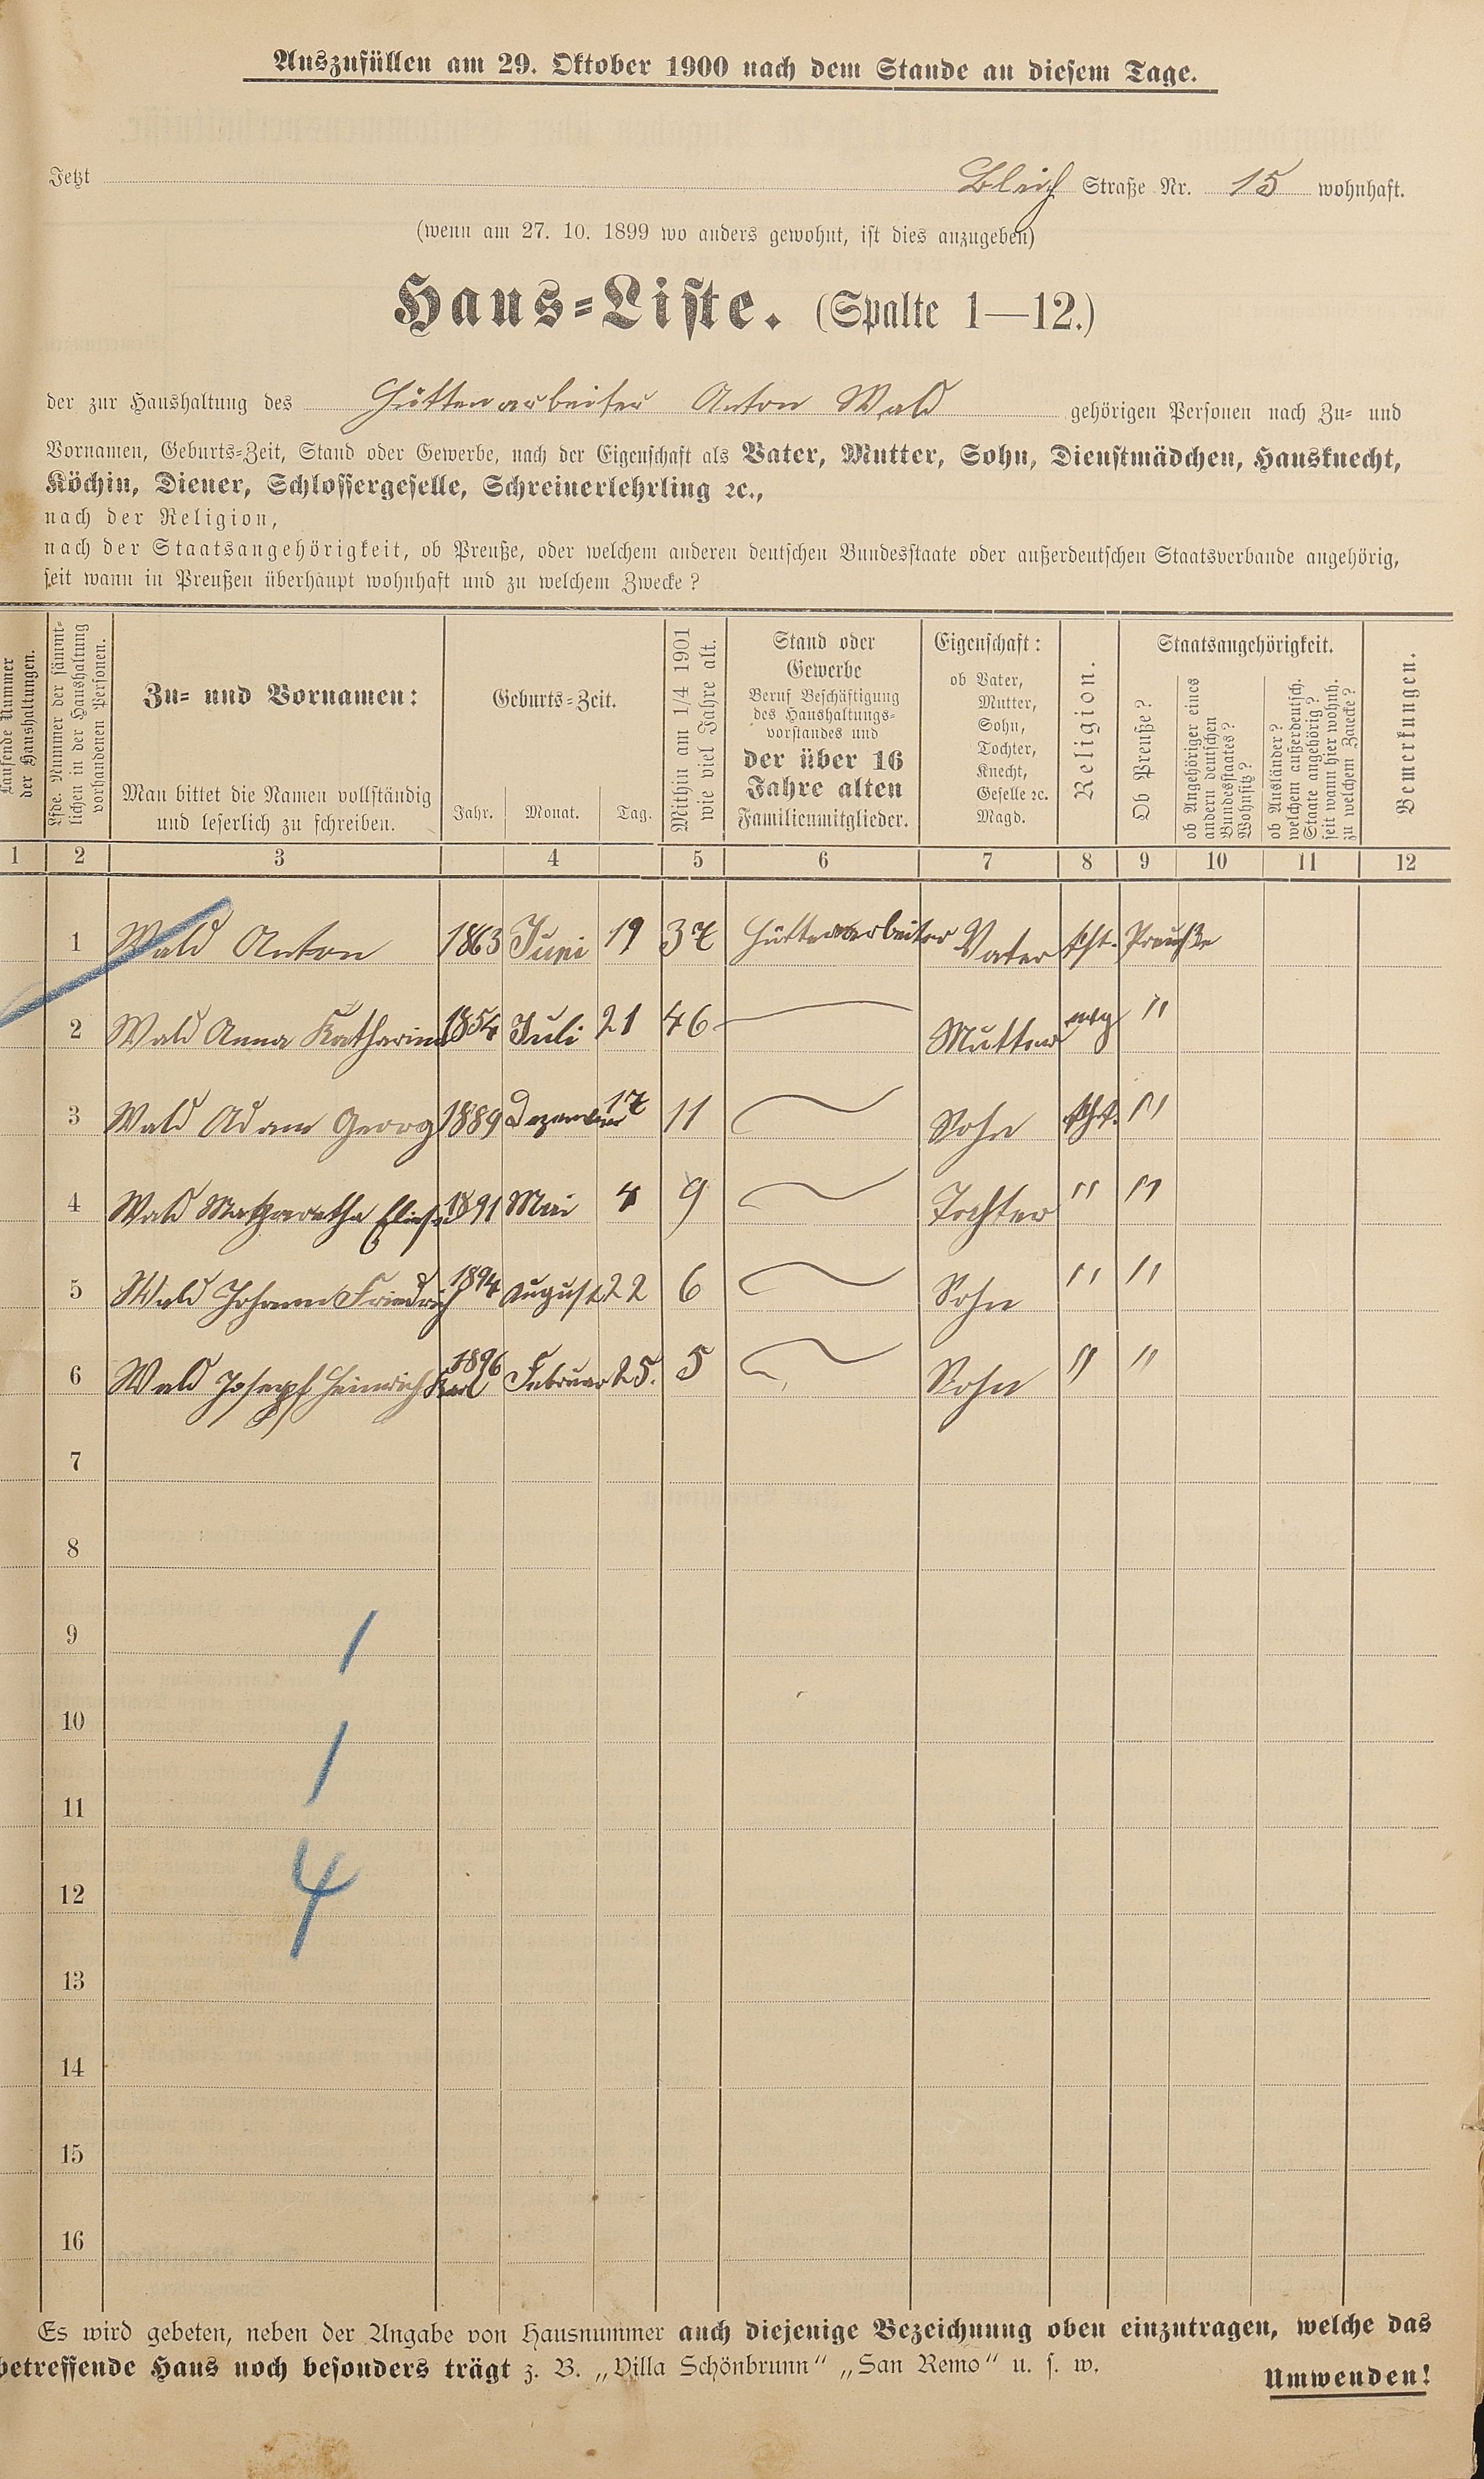 Auszufüllen am 29. Oktober 1900 nach dem Stande an diesem Tage.
Jetzt Bleich Straße Nr. 15 wohnhaft.
(wenn am 27. 10. 1899 wo anders gewohnt, ist dies anzugeben)
Haus-Liste. (Spalte 1—12.)
der zur Haushaltung des Hüttenarbeiter Anton Wald gehörigen Personen nach Zu- und
Vornamen, Geburts-Zeit, Stand oder Gewerbe, nach der Eigenschaft als Vater, Mutter, Sohn, Dienstmädchen, Hausknecht,
Köchin, Diener, Schlossergeselle, Schreinerlehrling ꝛc.,
nach der Religion,
nach der Staatsangehörigkeit, ob Preuße, oder welchem anderen deutschen Bundesstaate oder außerdeutschen Staatsverbande angehörig,
seit wann in Preußen überhaupt wohnhaft und zu welchem Zwecke?
Laufende Nummer
der Haushaltungen.
Lfde. Nummer der sämmt-
lichen in der Haushaltung
vorhandenen Personen.
Zu- und Vornamen:
Man bittet die Namen vollständig
und leserlich zu schreiben.
Geburts-Zeit.
Jahr. Monat. Tag.
Mithin am 1/4 1901
wie viel Jahre alt.
Stand oder
Gewerbe
Beruf Beschäftigung
des Haushaltungs-
vorstandes und
der über 16
Jahre alten
Familienmitglieder.
Eigenschaft:
ob Vater,
Mutter,
Sohn,
Tochter,
Knecht,
Geselle ꝛc.
Magd.
Religion.
Staatsangehörigkeit.
Ob Preuße?
ob Angehöriger eines
andern deutschen
Bundesstaates?
Wohnsitz?
ob Ausländer?
welchem außerdeutsch.
Staate angehörig?
seit wann hier wohnh.
zu welchem Zwecke?
Bemerkungen.
1 2 3 4 5 6 7 8 9 10 11 12
1 Wald Anton 1863 Juni 19 37 Hüttenarbeiter Vater kth. Preuße
2 Wald Anna Katharina 1854 Juli 21 46 Mutter evg "
3 Wald Adam Georg 1889 Dezember 17 11 Sohn kth. "
4 Wald Margaretha Eliese 1891 Mai 4 9 Tochter " "
5 Wald Johann Friedrich 1894 August 22 6 Sohn " "
6 Wald Joseph Heinrich Karl 1896 Februar 25. 5 Sohn " "
7
8
9
1
10
1
11
12
4
13
14
15
16
Es wird gebeten, neben der Angabe von Hausnummer auch diejenige Bezeichnung oben einzutragen, welche das
betreffende Haus noch besonders trägt z. B. „Villa Schönbrunn“ „San Remo“ u. s. w.
Umwenden!